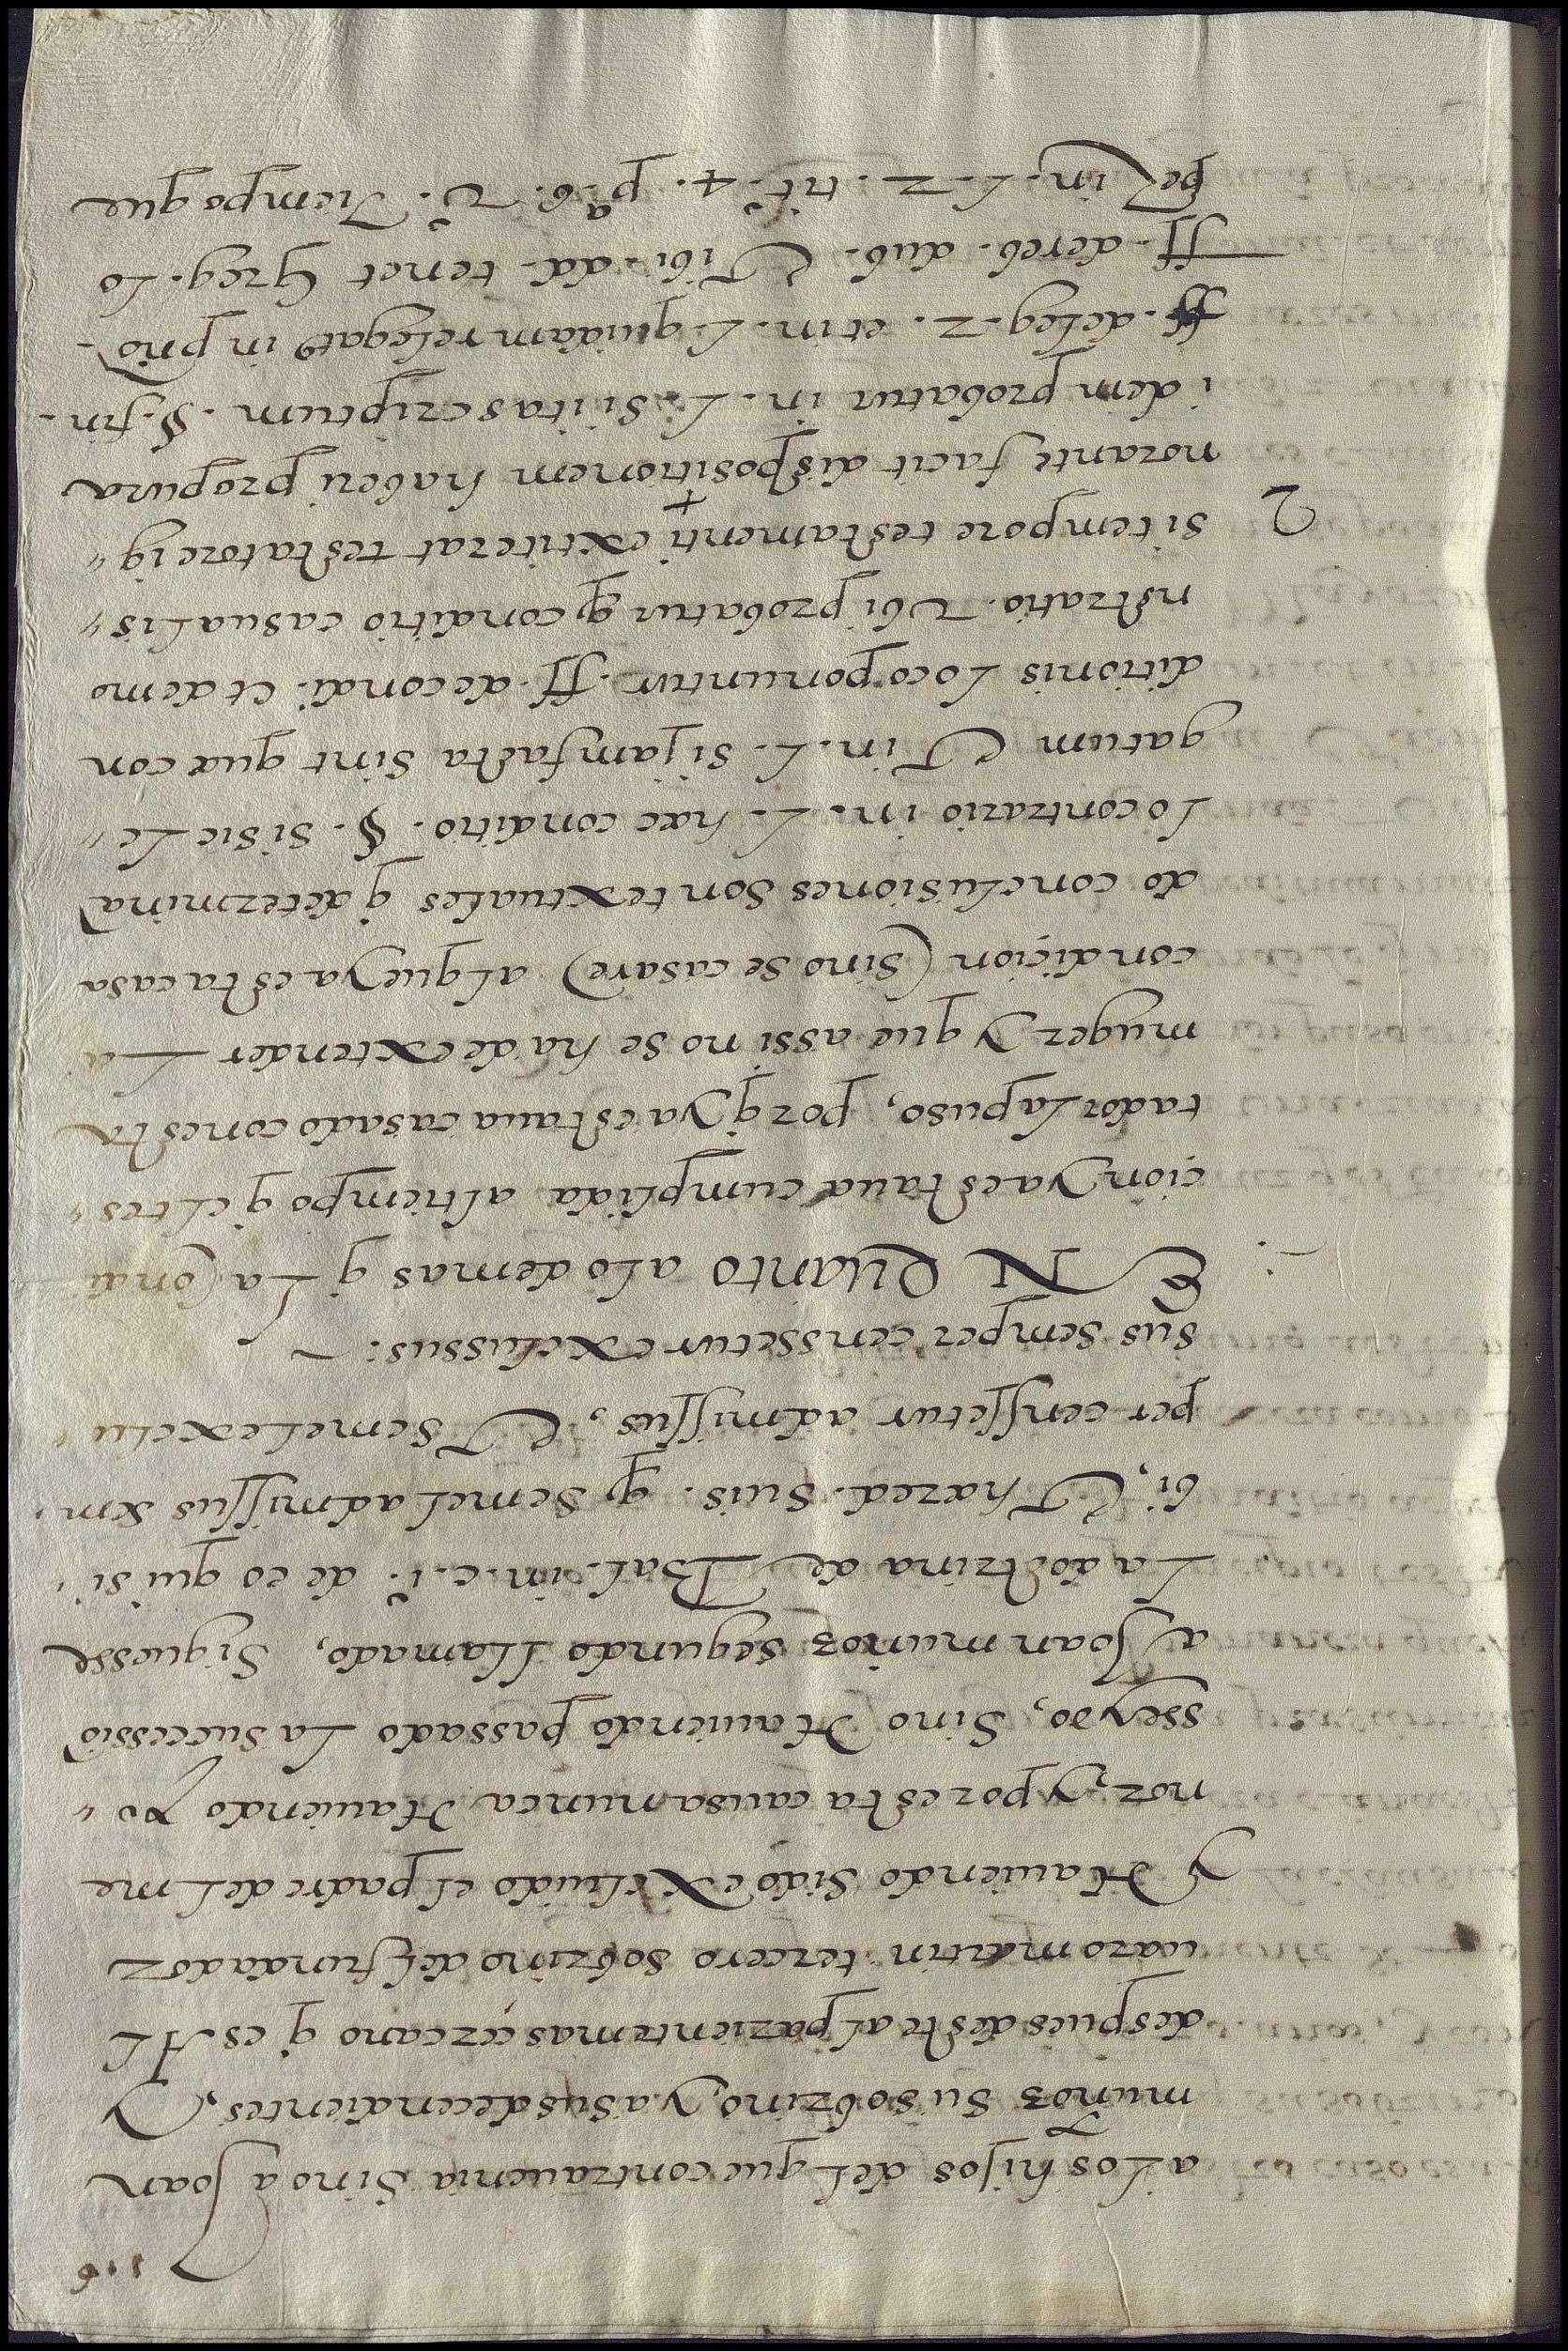 116
a los hijos del que contrauenia Sino a Joan
muñoz su sobrino, y a sus decendientes, Y
despues deste al pariente mas çercano q̃ es Al
uaro martin tercero sobrino del fundador
Y Hauiendo Sido excluido el padre del me
nor, y por esta causa nunca Hauiendo po„
sseydo, Sino Hauiendo passado La Successiõ
a Joan muñoz segundo llamado, Siguesse
La doctrina de Bal. in. c. i.º de eo qui si„
bi, et hæred. suis. q̃ semel admissus sem„
per censsetur admissus, et semel exclu„
sus semper censsetur exclussus:~
EN QUANTO a lo demas q̃ La Condi
çion ya estaua cumplida al tiempo q̃ el tes„
tador la puso, por q̃ ya estaua casado con esta
muger y que assi no se ha de extender La
condiçion (sino se casare) al que ya esta casa
do conclusiones son textuales q̃ determinã
lo contrario in. l. hæc conditio. §. si sic le„
gatum et in. l. si jam facta sint quæ con
ditionis loco ponuntur. ff. de condi. et demo
nstratio. Vbi probatur q̃ conditio casualis„
2 si tempore testamenti + extiterat testatore ig„
norante, facit dispositionem haberi pro pura
idem probatur in. l. si ita scriptum. §. fin.
ff. de leg. 2. et in. l. quidam relegatꝰ in prĩo.
ff. de reb. dub. et ibi. dd. tenet Greg. Lo
pez in. l. 2. tit.º 4. p.ª 6. v.º Tiempo que